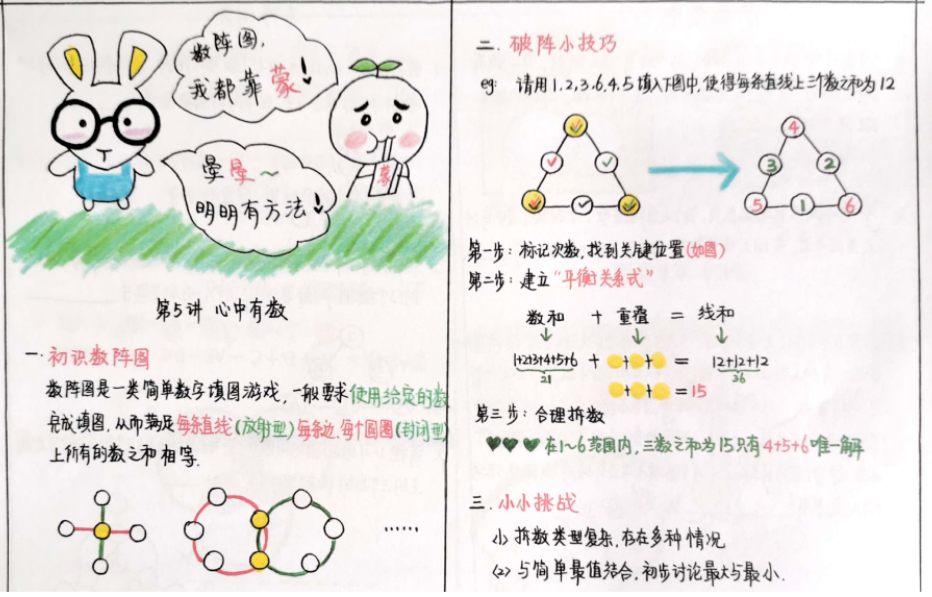 数阵图,
我都靠蒙!
蒙
晕晕~~
明明有方法!
第5讲 心中有数
一.初识数阵图
数阵图是一类简单数字填图游戏,一般要求使用给定的数
完成填图,从而满足每条直线(反射型)每条边.每个圆圈(封闭型)
上所有的数之和相等.
......
二.破阵小技巧
eg: 请用1.2.3.6.4.5填入下图中,使得每条直线上三个数之和为12
4
3 2
5 1 6
第一步:标记次数,找到关键位置(如图)
第二步:建立"平衡关系式"
数和 + 重叠 = 线和
1+2+3+4+5+6 + + + = 12+12+12
21 36
+ + = 15
第三步:合理拆数
在1~6范围内,三数之和为15只有4+5+6唯一解
三.小小挑战
(1) 拆数类型复杂,存在多种情况
(2) 与简单最值结合,初步讨论最大与最小.